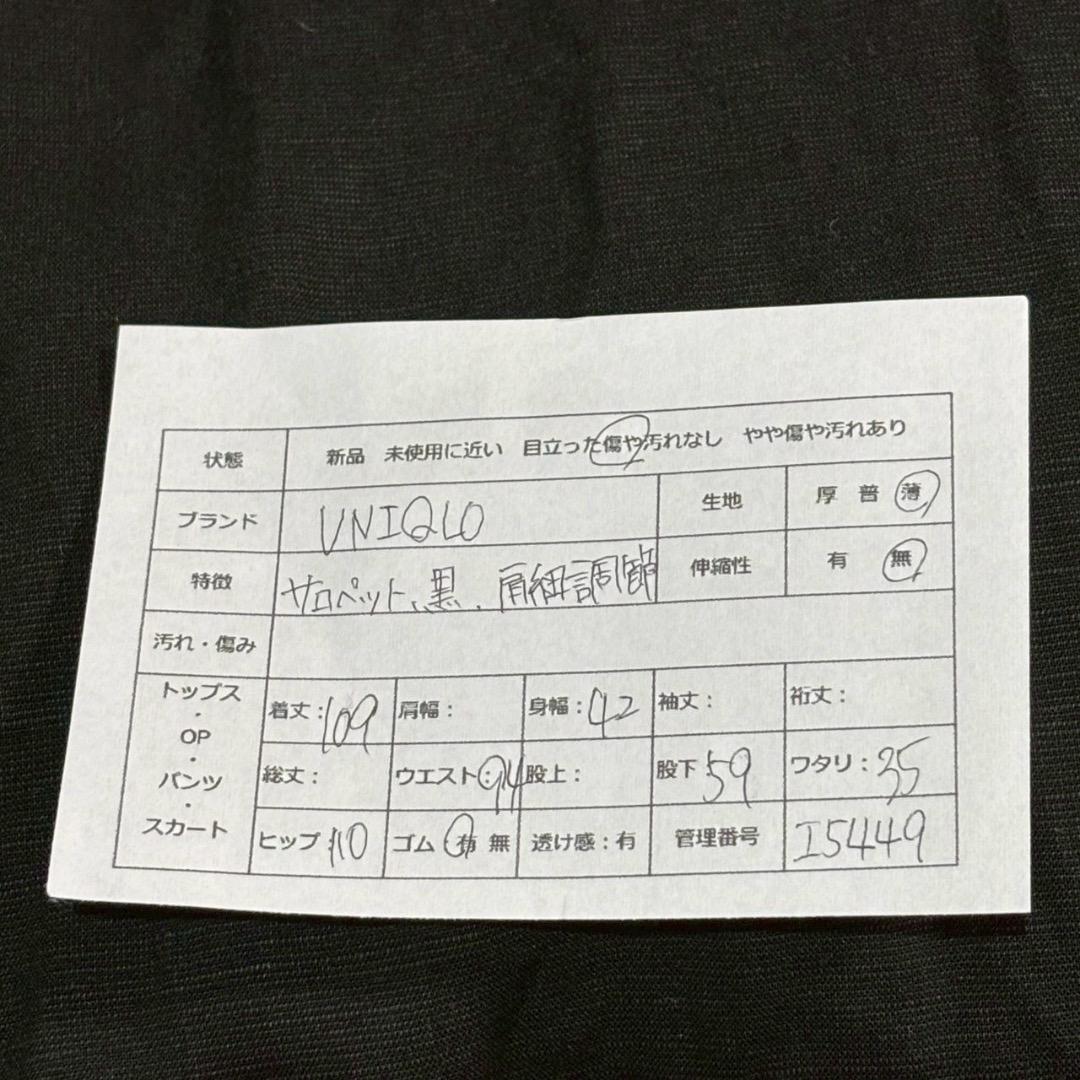 状態 新品 未使用に近い 目立った傷や汚れなし やや傷や汚れあり
ブランド UNIQLO 生地 厚 普 薄
特徴 サロペット、黒、肩紐調節 伸縮性 有 無
汚れ・傷み
トップス・OP・パンツ・スカート
着丈:109 肩幅: 身幅:42 袖丈: 裄丈:
総丈: ウエスト:94 股上: 股下59 ワタリ:35
ヒップ:110 ゴム 有 無 透け感:有 管理番号 I5449